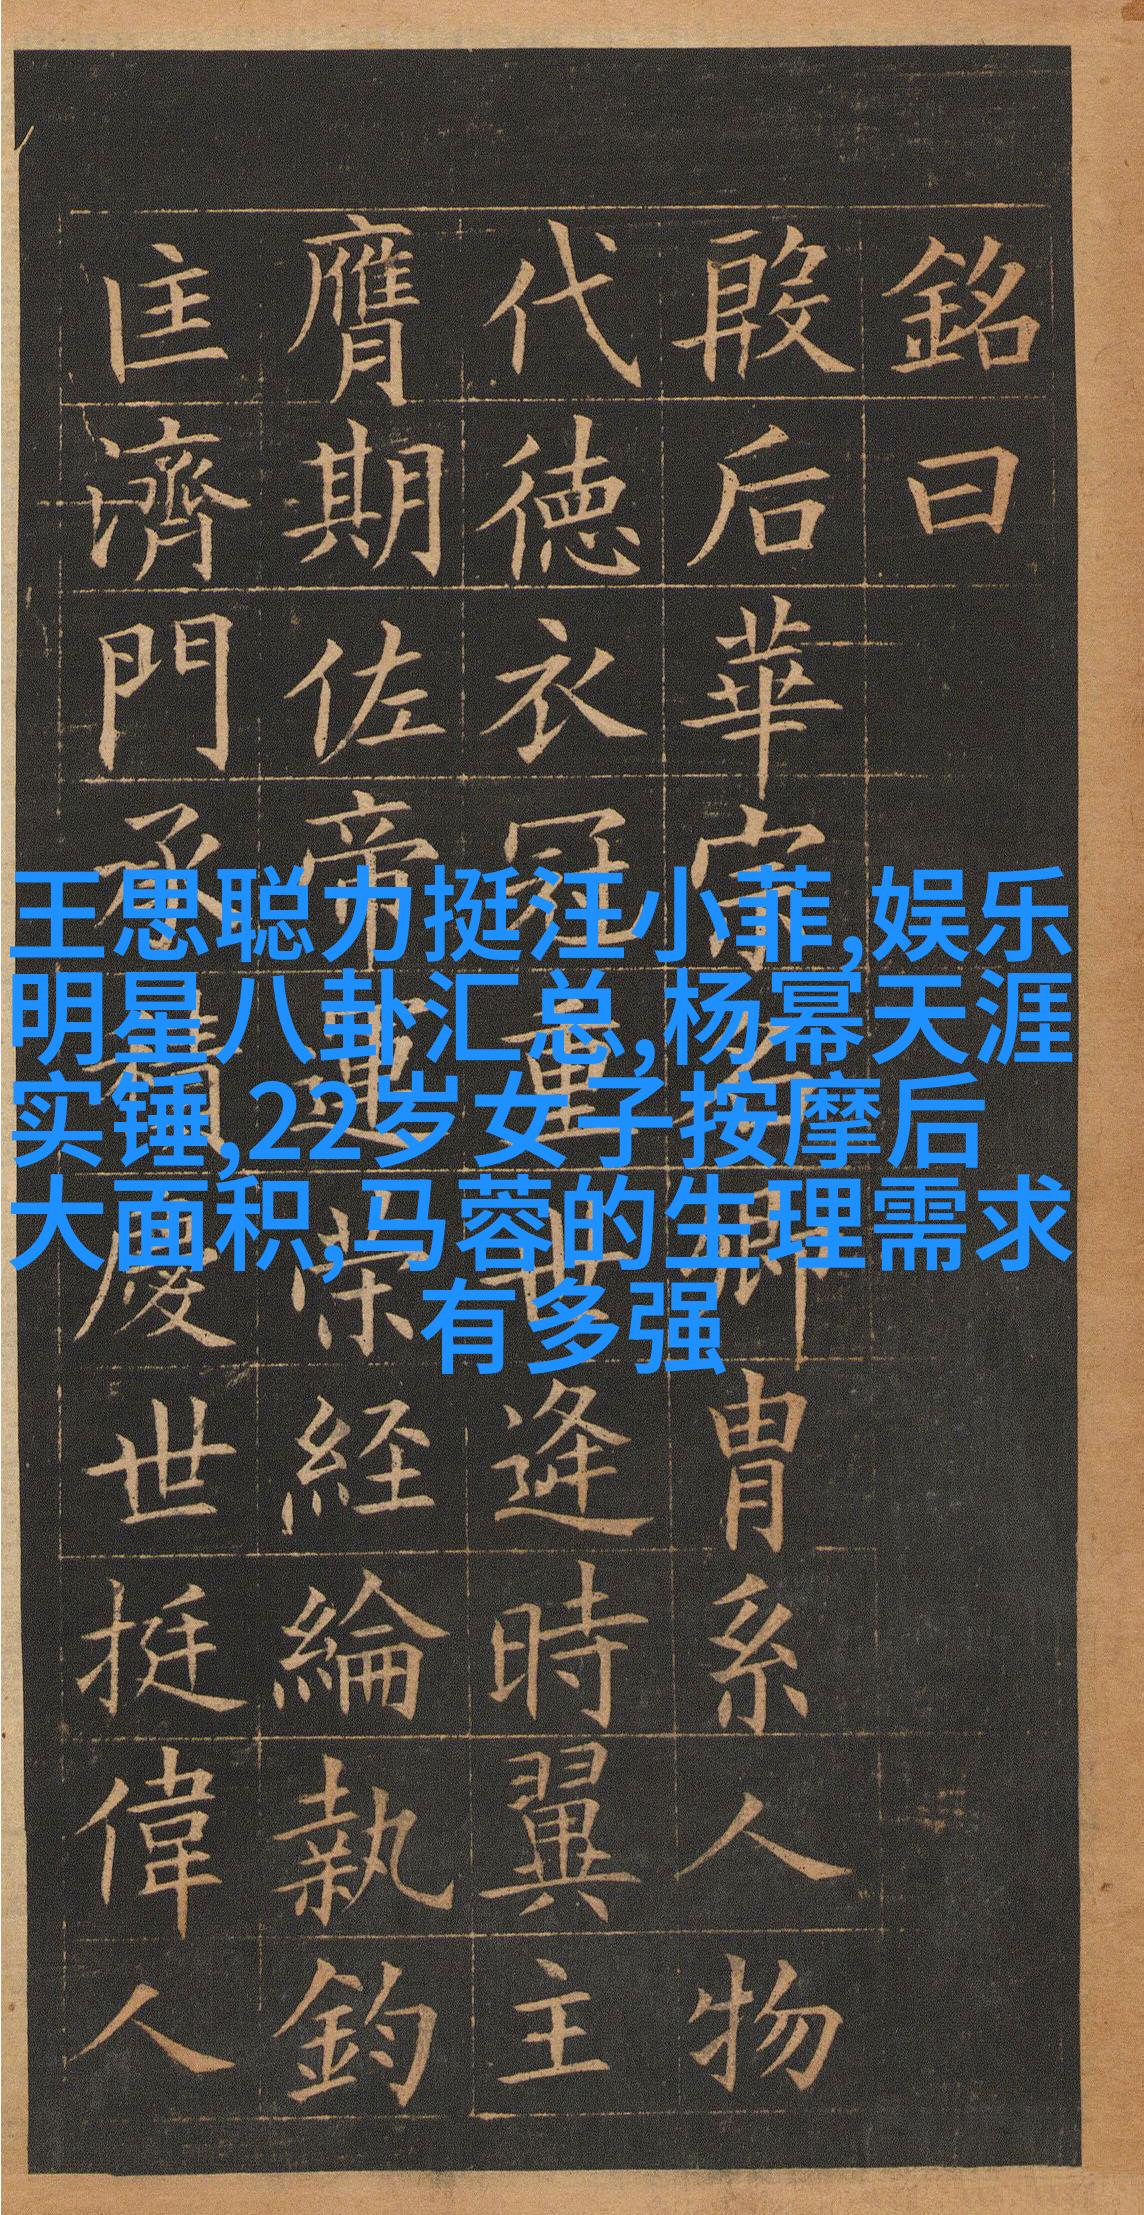 銘曰
殷后華宗名卿冑系人物
代徳衣冠重世逢時翼主
膺期佐帝運策経綸執鈞
匡濟門承積慶世挺偉人
王思聪力挺汪小菲,娱乐
明星八卦汇总,杨幂天涯
实锤,22岁女子按摩后
大面积,马蓉的生理需求
有多强